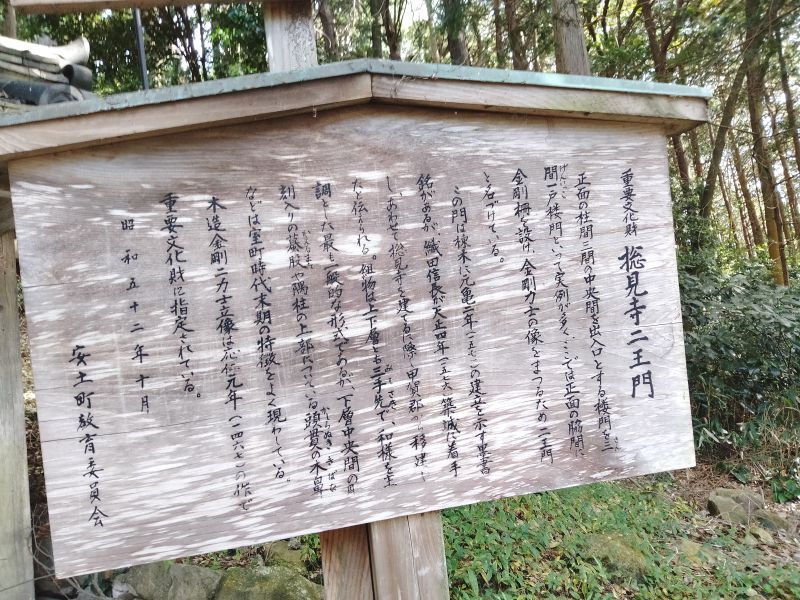 重要文化財 摠見寺二王門
正面の柱間三間の中央間を出入口とする楼門を三
間一戸楼門といって実例が多く、ここでは正面の脇間に
金剛柵を設け、金剛力士の像をまつるため二王門
と名づけている。
この門は棟木に元亀二年(一五七一)の建立を示す墨書
銘があるが、織田信長が天正四年(一五七六)築城に着手
しあわせて摠見寺を建てる際、甲賀郡から移建し
たと伝えられる。組物は上下層とも三手先で、和様を主
調とした最も一般的な形式であるが、下層中央間の
刻入りの蟇股や隅柱の上部についている頭貫の木鼻
などは室町時代末期の特徴をよく現わしている。
木造金剛二力士立像は応仁元年(一四六七)の作で
重要文化財に指定されている。
昭和五十二年十月
安土町教育委員会